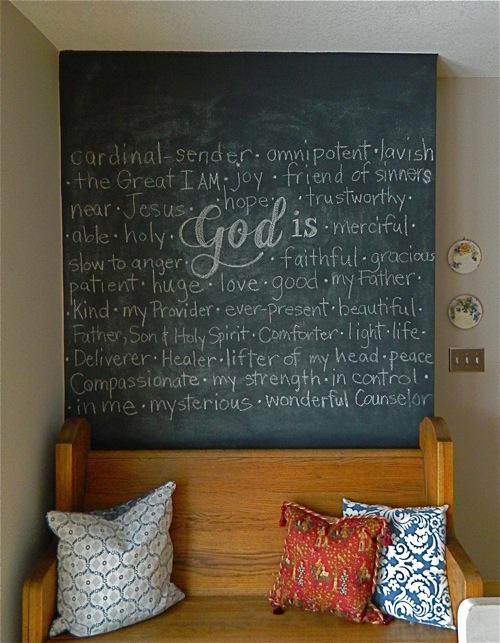 cardinal-sender · omnipotent · lavish
· the Great I AM · joy · friend of sinners
near · Jesus · hope · trustworthy ·
· able · holy · God is · merciful ·
slow to anger · faithful · gracious
patient · huge · love · good · my Father ·
· Kind · my Provider · ever-present · beautiful ·
Father, Son & Holy Spirit · Comforter · light · life ·
· Deliverer · Healer · lifter of my head · peace
Compassionate · my strength · in control ·
· in me · mysterious · wonderful Counselor